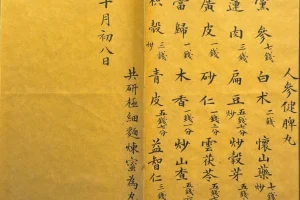 人參健脾丸
黨參 七錢 白术 二錢 懷山藥 炒 七錢
蓮肉 三錢 扁豆 炒 炒穀芽
廣皮 三錢 砂仁 雲茯苓
當歸 三錢 木香 炒山查
枳殼 炒 青皮 益智仁
共研極細麵煉蜜為丸
十月初八日